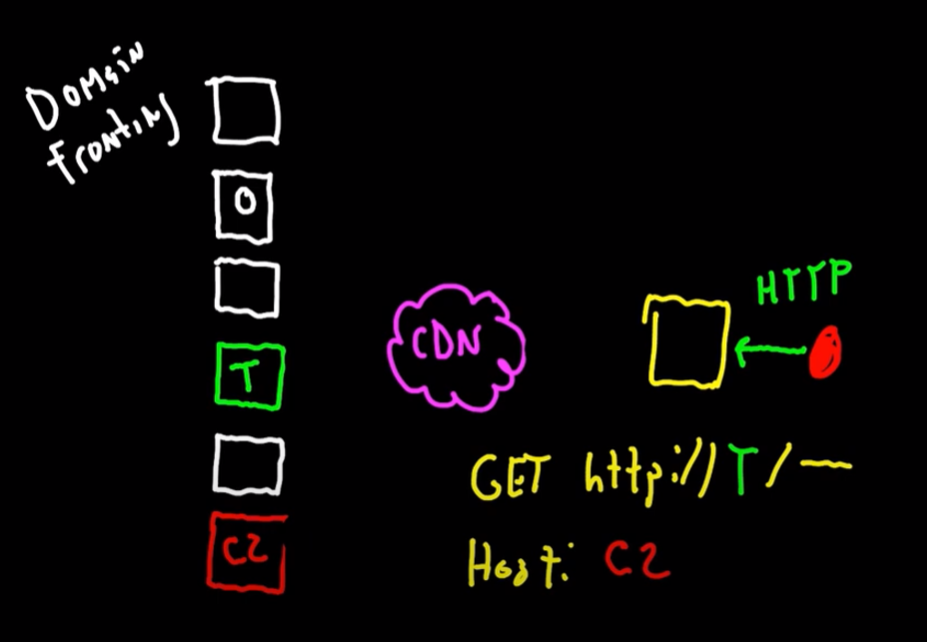 Domain
fronting
O
T
CDN
HTTP
GET http://T/—
C2
Host: C2